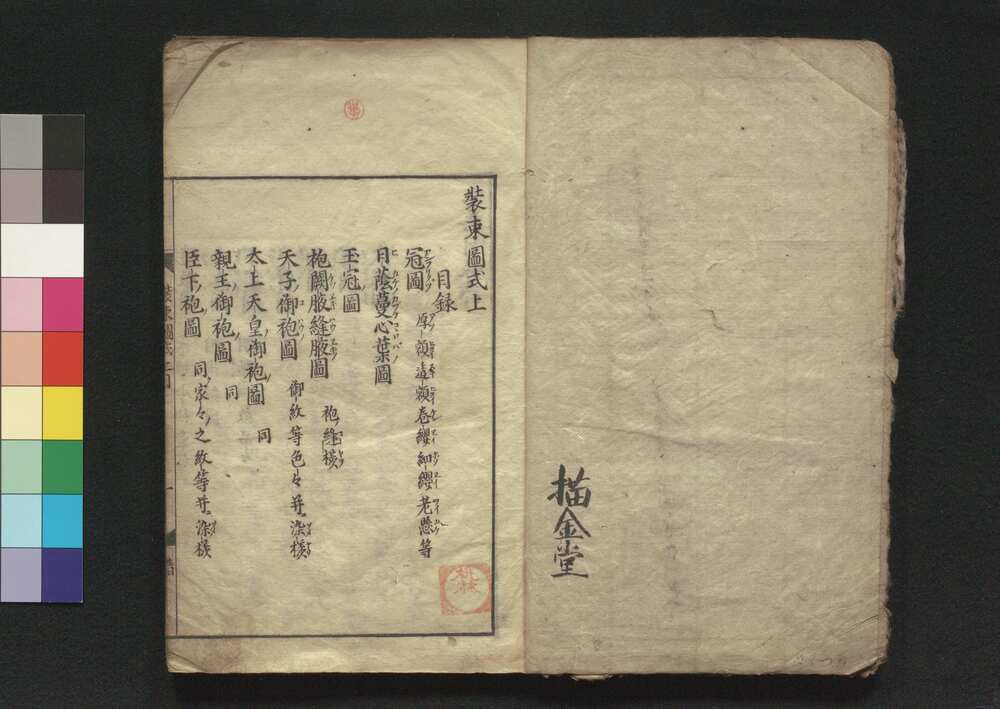 描金堂
装束圖式上
目録
冠圖 厚額透額巻纓細纓老懸等
日蔭蔓心葉圖
玉冠圖
袍闕腋縫腋圖 袍ノ縫様
天子ノ御袍圖 御紋等色々并ニ染様
太上天皇ノ御袍圖 同
親王ノ御袍圖 同
臣下ノ袍圖 同ク家々ノ之紋等并ニ染様